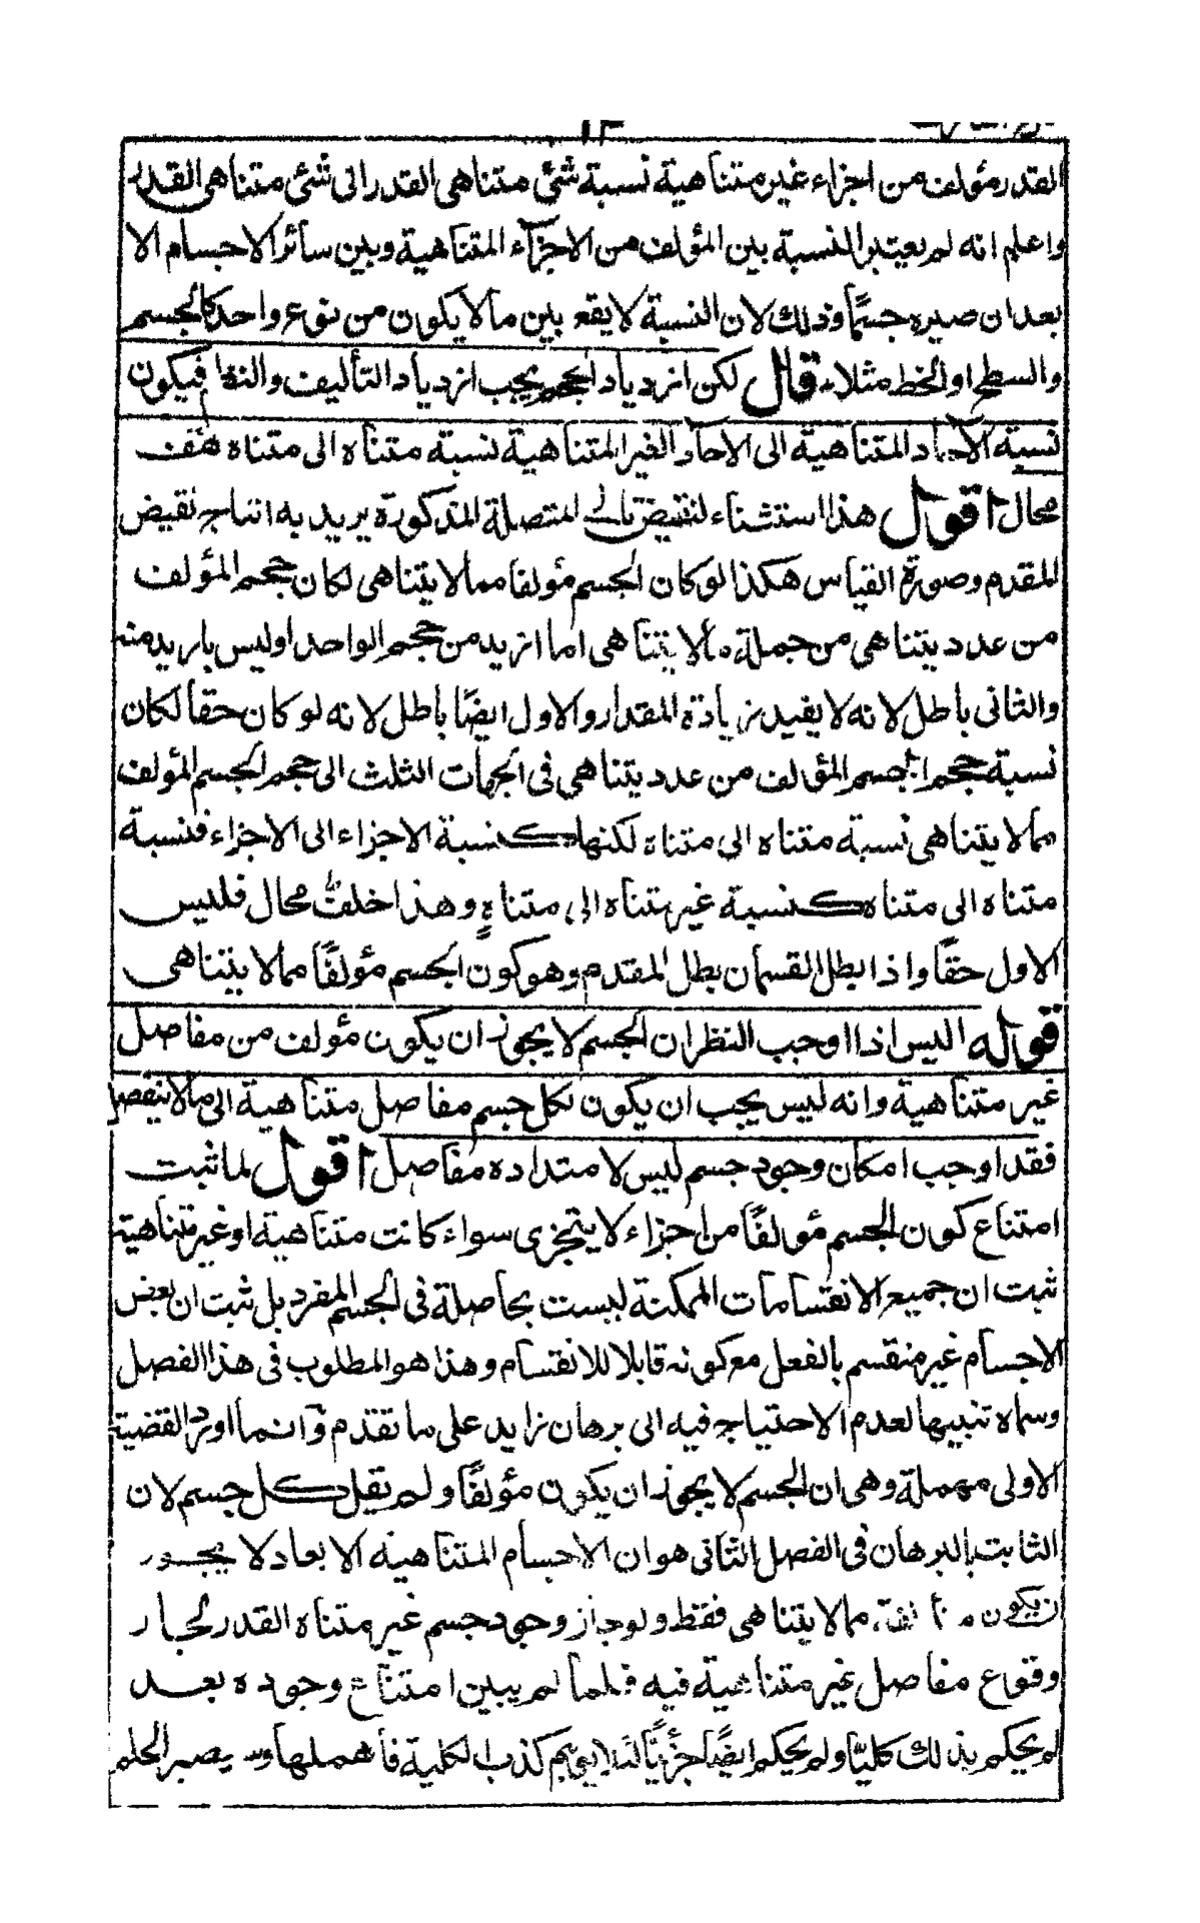 ١٣
القدر مؤلف من اجزاء غير متناهية نسبة شئ متناهى القدر الى شئ متناهى القدر
واعلم انه لم يعتبر النسبة بين المؤلف من الاجزاء المتناهية وبين سائر الاجسام الا
بعد ان صيره جسمًا وذلك لان النسبة لا يقع بين ما لا يكون من نوع واحد كالجسم
والسطح او الخط مثلا قال لكن ازدياد الحجم يجب ازدياد التأليف والنظم فيكون
نسبة الآحاد المتناهية الى الآحاد الغير المتناهية نسبة متناه الى متناه هف
محال اقول هذا استثناء لنقيض تالى المتصلة المذكورة يريد به انتاج نقيض
المقدم وصورة القياس هكذا لو كان الجسم مؤلفا مما لا يتناهى لكان حجم المؤلف
من عدد يتناهى من جملة ما لا يتناهى اما ازيد من حجم الواحد او ليس بازيد منه
والثانى باطل لانه لا يفيد زيادة المقدار والاول ايضًا باطل لانه لو كان حقا لكان
نسبة حجم الجسم المؤلف من عدد يتناهى فى الجهات الثلث الى حجم الجسم المؤلف
مما لا يتناهى نسبة متناه الى متناه لكنها كنسبة الاجزاء الى الاجزاء فنسبة
متناه الى متناه كنسبة غير متناه الى متناهٍ وهذا خلف محال فليس
الاول حقًا واذا بطل القسمان بطل المقدم وهو كون الجسم مؤلفًا مما لا يتناهى
قوله اليس اذا اوجب النظر ان الجسم لا يجوز ان يكون مؤلف من مفاصل
غير متناهية وانه ليس يجب ان يكون لكل جسم مفاصل متناهية الى ما لا ينفصل
فقد اوجب امكان وجود جسم ليس لامتداده مفاصل اقول لما ثبت
امتناع كون الجسم مؤلفًا من اجزاء لا يتجزى سواء كانت متناهية او غير متناهية
ثبت ان جميع الانقسامات الممكنة ليست بحاصلة فى الجسم المفرد بل ثبت ان بعض
الاجسام غير منقسم بالفعل مع كونه قابلا للانقسام وهذا هو المطلوب فى هذا الفصل
وسماه تنبيها لعدم الاحتياج فيه الى برهان زايد على ما تقدم وانما اورد القضية
الاولى مهملة وهى ان الجسم لا يجوز ان يكون مؤلفًا ولم يقل كل جسم لان
الثابت بالبرهان فى الفصل الثانى هو ان الاجسام المتناهية الابعاد لا يجوز
ان يكون مما لا يتناهى فقط ولو جاز وجود جسم غير متناه القدر لجاز
وقوع مفاصل غير متناهية فيه فلما لم يبين امتناع وجوده بعد
لم يحكم بذلك كليًا ولم يحكم ايضًا جزئيًا لئلا يوهم كذب الكلية فاهملها